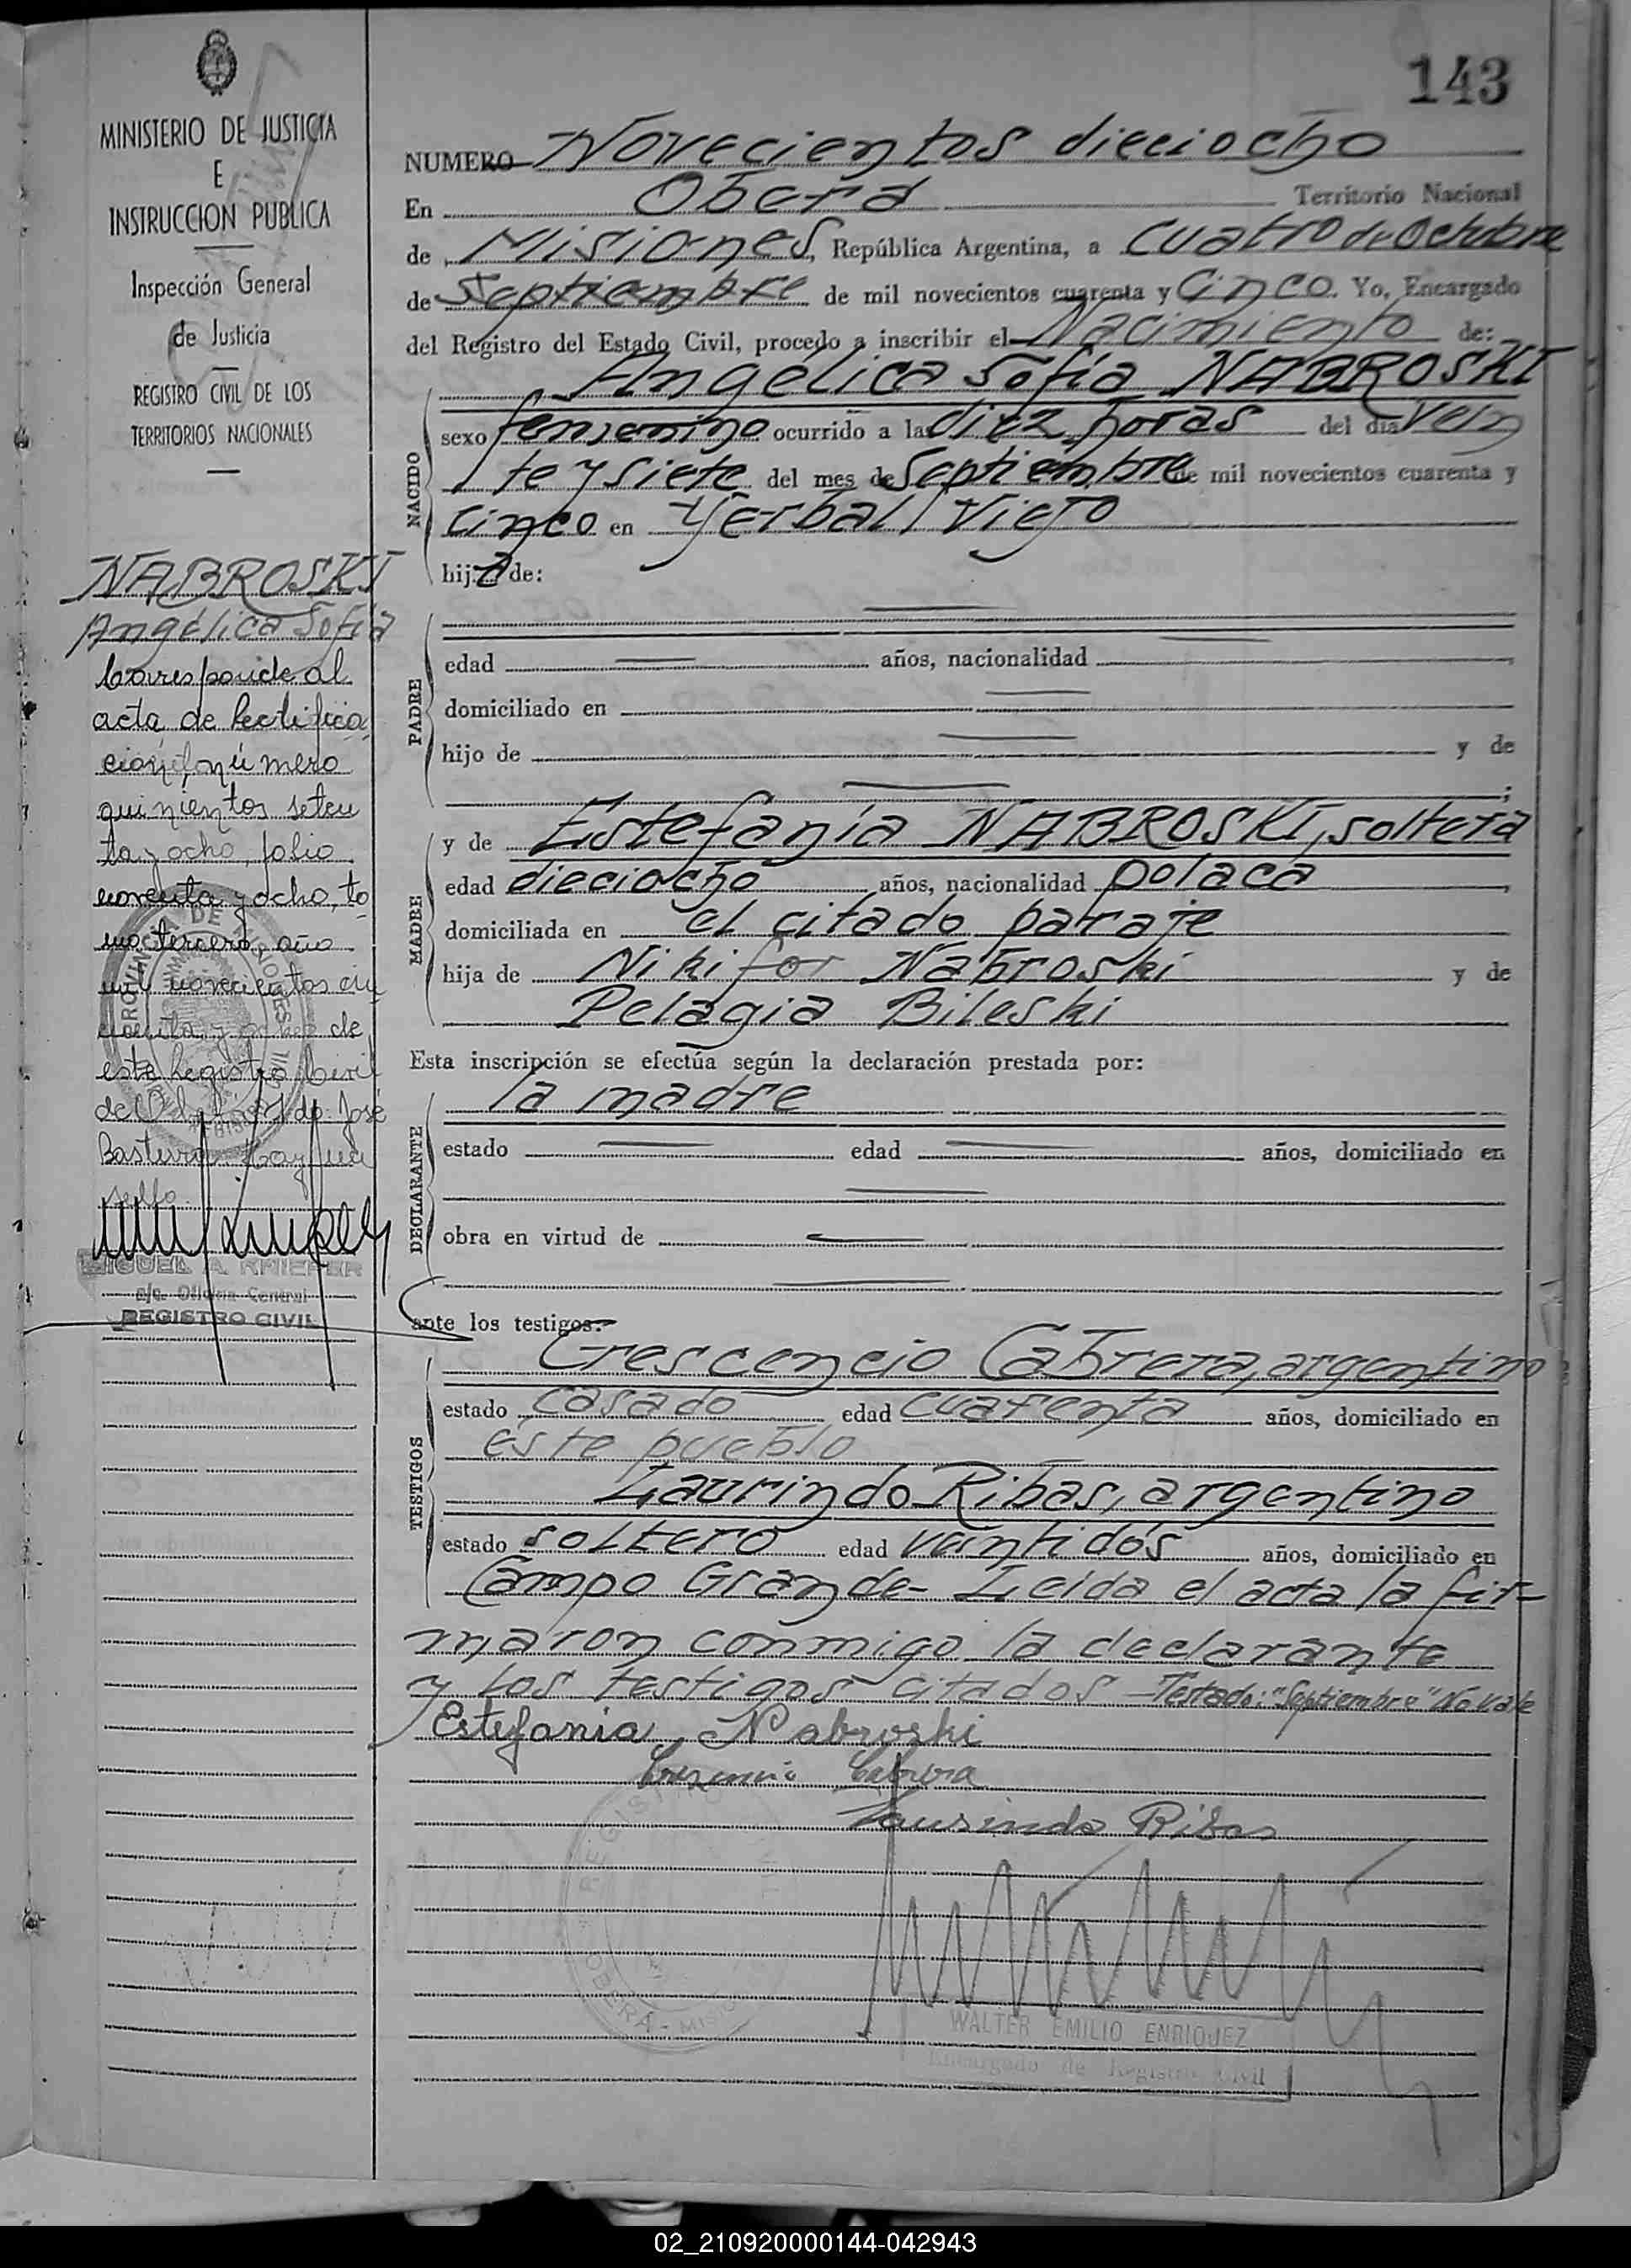 143
MINISTERIO DE JUSTICIA
E
INSTRUCCION PUBLICA
Inspección General
de Justicia
REGISTRO CIVIL DE LOS
TERRITORIOS NACIONALES
NABROSKI
Angélica Sofía
Corresponde al
acta de Rectifica
ción, número
quinientos seten
ta y ocho, folio
noventa y ocho, to
mo tercero, año
mil novecientos cin
cuenta y de
este Registro Civil
de José
Hay un
sello
MIGUEL A. KRIEFER
a/c. Oficina Central
REGISTRO CIVIL
NUMERO Novecientos dieciocho
En Oberá Territorio Nacional
de Misiones, República Argentina, a cuatro de Octubre
de Septiembre de mil novecientos cuarenta y Cinco. Yo, Encargado
del Registro del Estado Civil, procedo a inscribir el Nacimiento de:
NACIDO
Angélica Sofía NABROSKI
sexo femenino ocurrido a la diez horas del día vein
te y siete del mes de Septiembre de mil novecientos cuarenta y
cinco en Yerbal Viejo
hija de:
PADRE
edad años, nacionalidad
domiciliado en
hijo de y de
MADRE
y de Estefanía NABROSKI, soltera
edad dieciocho años, nacionalidad polaca,
domiciliada en el citado paraje
hija de Nikifor Nabroski y de
Pelagia Bileski
Esta inscripción se efectúa según la declaración prestada por:
DECLARANTE
la madre
estado edad años, domiciliado en
obra en virtud de
ante los testigos:
TESTIGOS
Crescencio Cabrera, argentino
estado casado edad cuarenta años, domiciliado en
éste pueblo
Laurindo Ribas, argentino
estado soltero edad veintidós años, domiciliado en
Campo Grande- Leida el acta la fir-
maron conmigo la declarante
y los testigos citados - Testado: "Septiembre" No vale
Estefania Nabroski
Cabrera
Laurindo Ribas
REGISTRO
OBERÁ - MISIONES
WALTER EMILIO ENRIQUEZ
Encargado de Registro Civil
02_210920000144-042943